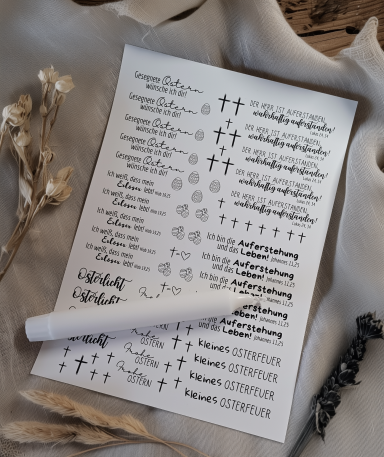 Gesegnete Ostern
wünsche ich dir!
Gesegnete Ostern
wünsche ich dir!
Gesegnete Ostern
wünsche ich dir!
Gesegnete Ostern
wünsche ich dir!
Gesegnete Ostern
wünsche ich dir!
Ich weiß, dass mein
Erlöser lebt! Hiob 19,25
Ich weiß, dass mein
Erlöser lebt! Hiob 19,25
Ich weiß, dass mein
Erlöser lebt! Hiob 19,25
Ich weiß, dass mein
Erlöser lebt! Hiob 19,25
Osterlicht
Osterlicht
Frohe
Frohe
OSTERN
Frohe
OSTERN
DER HERR IST AUFERSTANDEN,
wahrhaftig auferstanden!
Lukas 24, 34
DER HERR IST AUFERSTANDEN,
wahrhaftig auferstanden!
Lukas 24, 34
DER HERR IST AUFERSTANDEN,
wahrhaftig auferstanden!
Lukas 24, 34
DER HERR IST AUFERSTANDEN,
wahrhaftig auferstanden!
Lukas 24, 34
DER HERR IST AUFERSTANDEN,
wahrhaftig auferstanden!
Lukas 24, 34
Ich bin die Auferstehung
und das Leben! Johannes 11,25
Ich bin die Auferstehung
und das Leben! Johannes 11,25
Ich bin die Auferstehung
Johannes 11,25
Auferstehung
und das Leben! Johannes 11,25
kleines OSTERFEUER
kleines OSTERFEUER
kleines OSTERFEUER
kleines OSTERFEUER